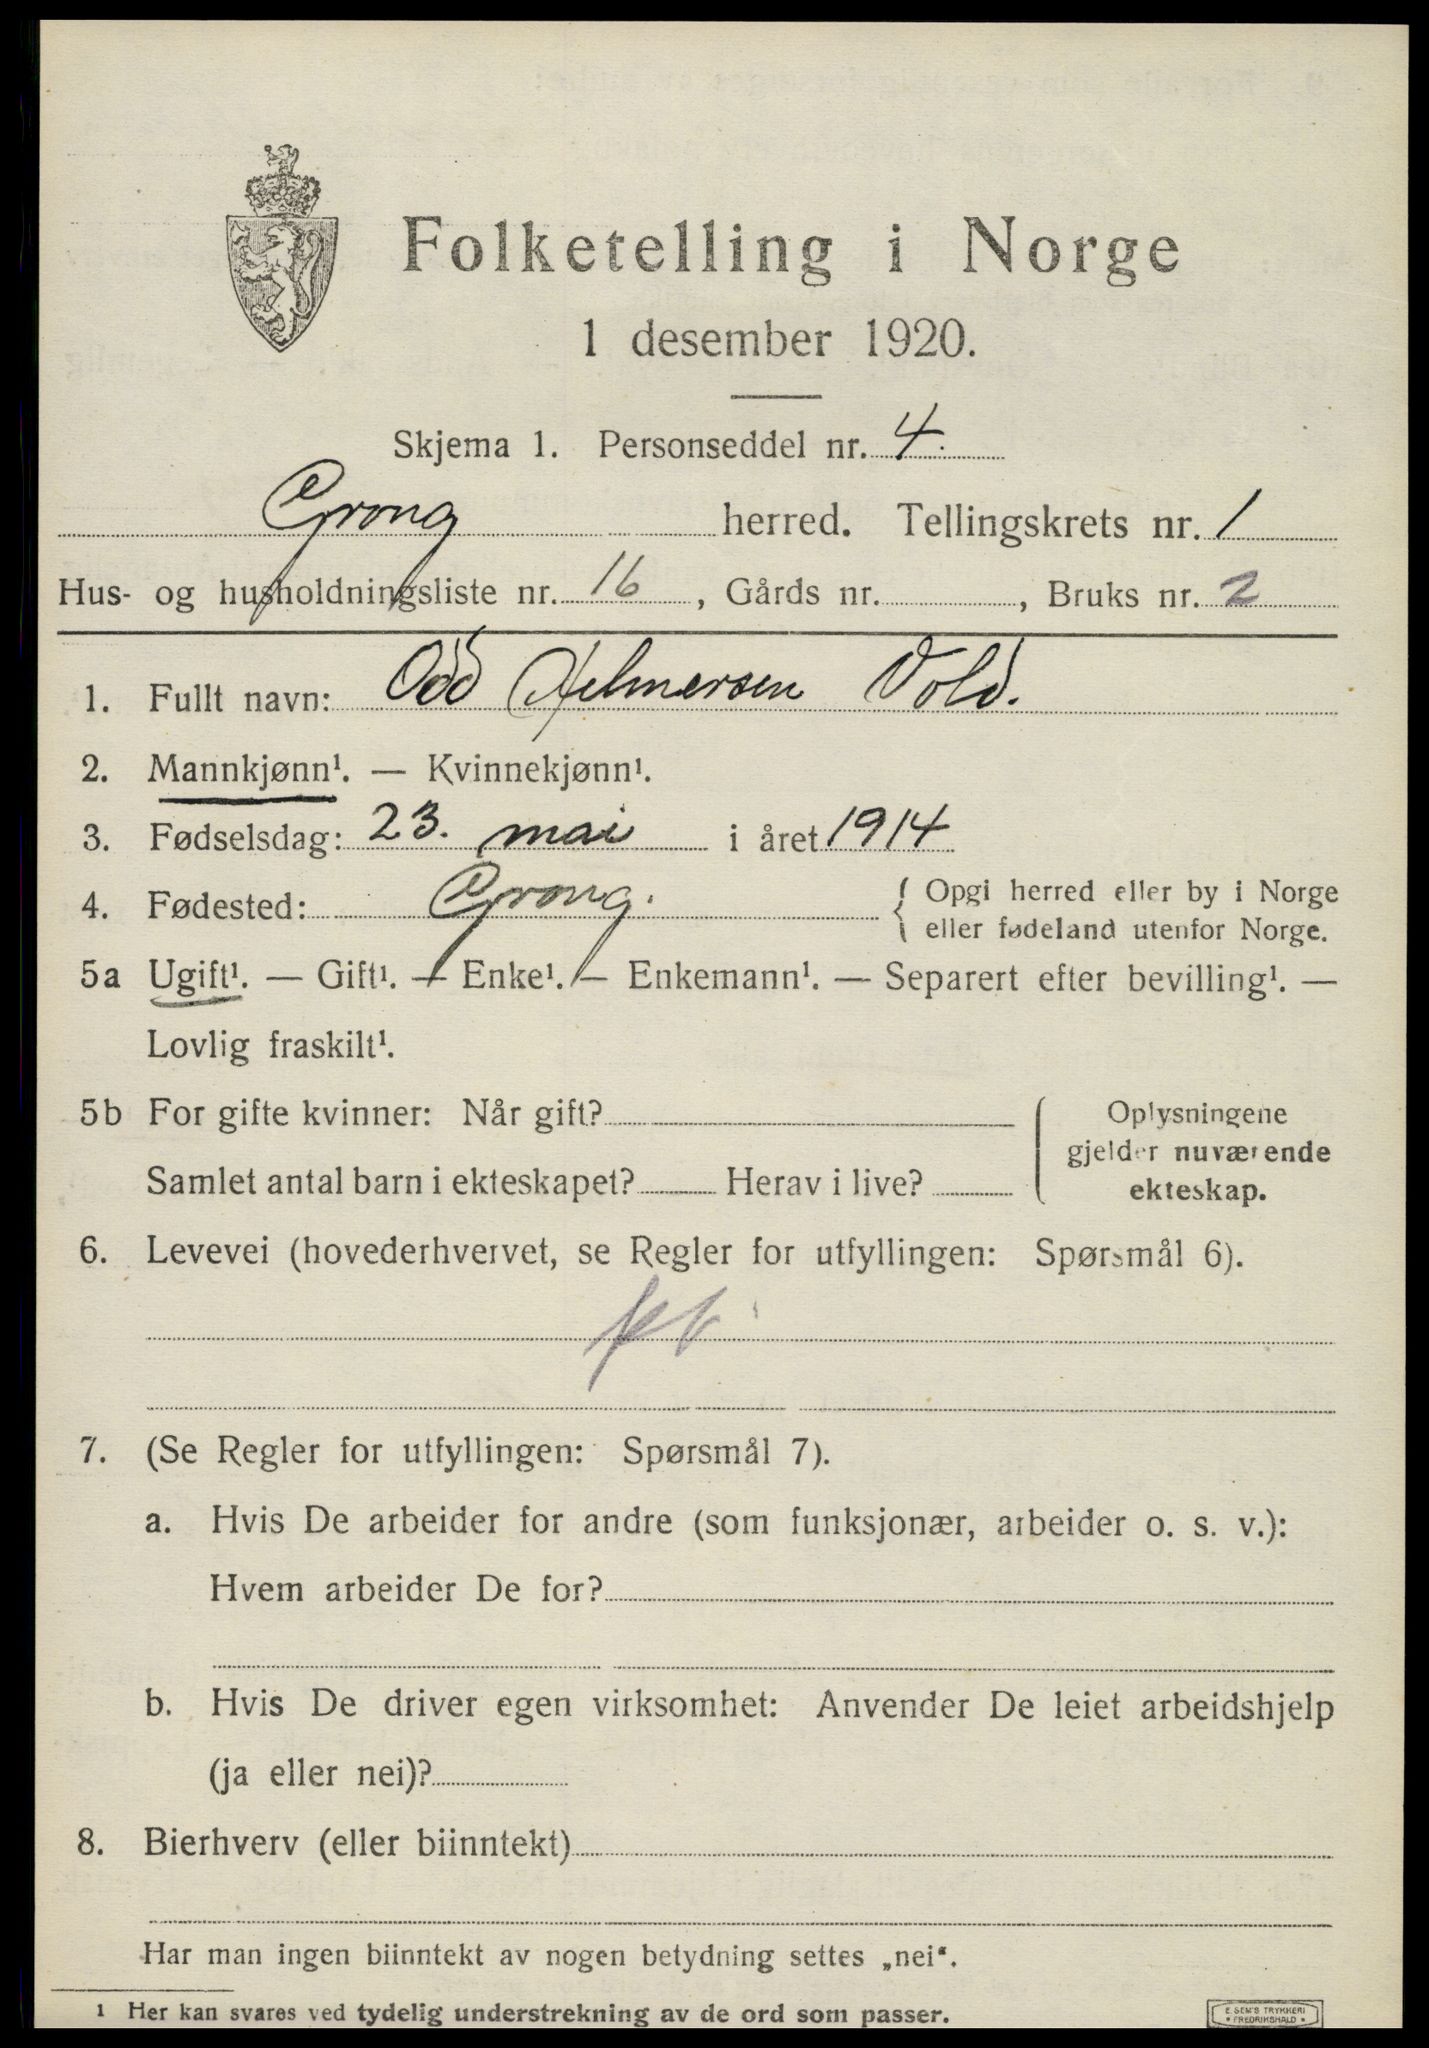 Folketelling i Norge
1 desember 1920.
Skjema 1. Personseddel nr. 4.
Grong herred. Tellingskrets nr. 1
Hus- og husholdningsliste nr. 16, Gårds nr. , Bruks nr. 2
1. Fullt navn: Odd Helmersen Vold.
2. Mannkjønn¹. — Kvinnekjønn¹.
3. Fødselsdag: 23. mai i året 1914
4. Fødested: Grong. { Opgi herred eller by i Norge
eller fødeland utenfor Norge.
5a Ugift¹. — Gift¹. — Enke¹. — Enkemann¹. — Separert efter bevilling¹. —
Lovlig fraskilt¹.
5b For gifte kvinner: Når gift? Oplysningene
gjelder nuværende
Samlet antal barn i ekteskapet? Herav i live? ekteskap.
6. Levevei (hovederhvervet, se Regler for utfyllingen: Spørsmål 6).
7. (Se Regler for utfyllingen: Spørsmål 7).
a. Hvis De arbeider for andre (som funksjonær, arbeider o. s. v.):
Hvem arbeider De for?
b. Hvis De driver egen virksomhet: Anvender De leiet arbeidshjelp
(ja eller nei)?
8. Bierhverv (eller biinntekt)
Har man ingen biinntekt av nogen betydning settes „nei".
1 Her kan svares ved tydelig understrekning av de ord som passer.
E. SEM'S TRYKKERI
• FREDRIKSHALD •